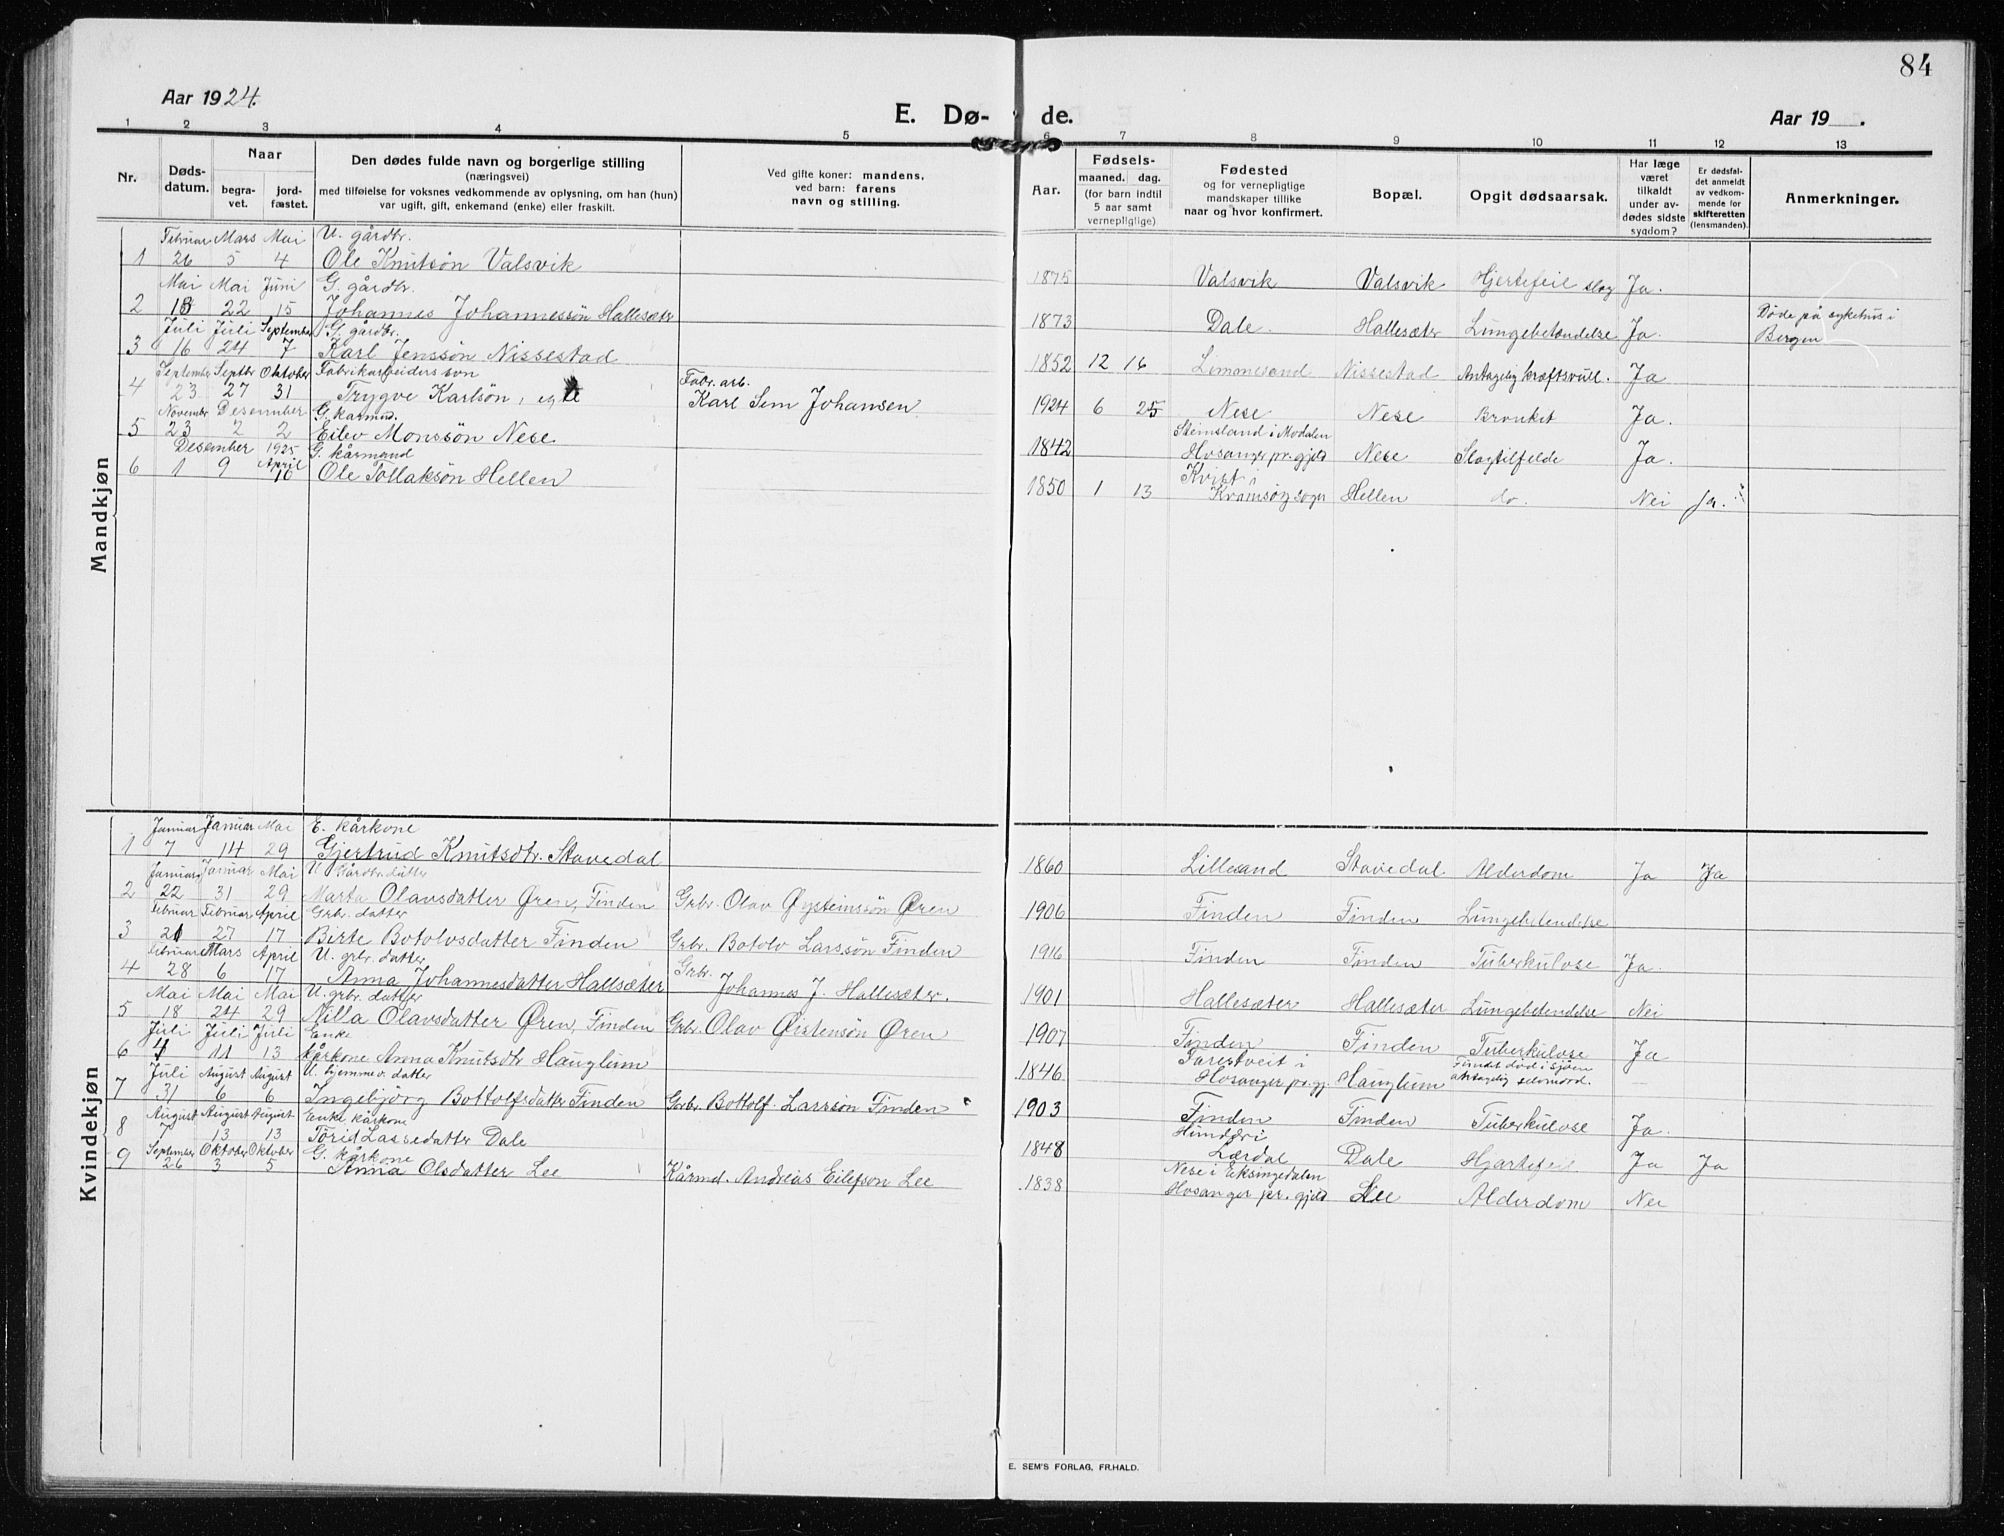 84
Aar 1924.
E. Dø- de.
Aar 19 .
1 2 3 4 5 6 7 8 9 10 11 12 13
Nr.
Døds-
datum.
Naar
begra-
vet.
jord-
fæstet.
Den dødes fulde navn og borgerlige stilling
(næringsvei)
med tilføielse for voksnes vedkommende av oplysning, om han (hun)
var ugift, gift, enkemand (enke) eller fraskilt.
Ved gifte koner: mandens.
ved barn: farens
navn og stilling.
Aar.
Fødsels-
maaned. dag.
(for barn indtil
5 aar samt
vernepligtige)
Fødested
og for vernepligtige
mandskaper tillike
naar og hvor konfirmert.
Bopæl.
Opgit dødsaarsak.
Har læge
været
tilkaldt
under av-
dødes sidste
sygdom?
Er dødsfal-
det anmeldt
av vedkom-
mende for
skifteretten
(lensmanden).
Anmerkninger.
Mandkjøn
Februar Mars Mai U. gårdbr.
1 26 5 4 Ole Knutsön Valsvik 1875 Valsvik Valsvik Hjertefeil slag Ja.
Mai Mai Juni G. gårdbr.
2 18 22 15 Johannes Johannessön Hallesæter 1873 Dale. Hallesæter Lungebetændelse Ja. Döde på sykehus i
Bergen
Juli Juli September G. gårdbr.
3 16 24 7 Karl Jenssön Nissestad 1852 12 16 Nissestad Antagelig kræftsvull. Ja
September Septbr Oktober Fabrikarbeiders sön Fabr. arb.
4 23 27 31 Trygve Karlsön, Karl Sem Johansen 1924 6 25 Nese Nese Bronkit Ja.
Novembr Desember G. kårmd. Steinsland i Modalen
5 23 2 2 Eilev Monssön Nese 1842 Hosanger pr. gjeld Nese Slagtilfelde Ja.
Desember 1925 April G. kårmand Kvist i
6 1 9 10 Ole Tollaksön Hellen 1850 1 13 Kvamsöy sogn Hellen do. Nei Ja.
Kvindekjøn
Januar Januar Mai E. kårkone
1 7 14 29 Gjertrud Knutsdtr. Stavedal 1860 Lillesand Stavedal Alderdom Ja Ja
Januar Januar Mai U. Gårdbr. datter
2 22 31 29 Marta Olavsdatter Øren, Finden Grbr. Olav Øysteinssön Øren 1906 Finden Finden Lungebetendelse
Februar Februar April Grbr. datter
3 21 27 17 Birte Botolvsdatter Finden Grbr. Botolv Larssön Finden 1916 Finden Finden Tuberkulose Ja.
Februar Mars April U. grbr. datter Grbr.
4 28 6 17 Anna Johannesdatter Hallsæter Johannes J. Hallesæter. 1901 Hallesæter Hallesæter Lungebetendelse Nei
Mai Mai Mai U. grbr. datter
5 18 24 29 Nilla Olavsdatter Øren, Finden Grbr. Olav Øistensön Øren 1907 Finden Finden Tuberkulose Ja
Juli Juli Juli Enke Tarestveit i Fundet död i sjöen
6 4 11 13 kårkone Anna Knutsdtr Hauglum 1846 Hosanger pr. gj. Hauglum antagelig selvmord. —
Juli August August U. hjemmev. datter
7 31 6 6 Ingebjörg Bottolfsdatter Finden Grbr. Bottolf Larssön Finden 1903 Finden Finden Tuberkulose Ja.
August August August Enke kårkone
8 7 13 13 Törid Lassedatter Dale 1848 Lærdal Dale Hjartefeil Ja Ja
September Oktober Oktober G. kårkone Nese i Eksingedalen
9 26 3 5 Anna Olsdatter Lee Kårmd. Andreas Eilefson Lee 1838 Hosanger pr. gjeld Lee Alderdom Nei
E. SEM'S FORLAG, FR.HALD.